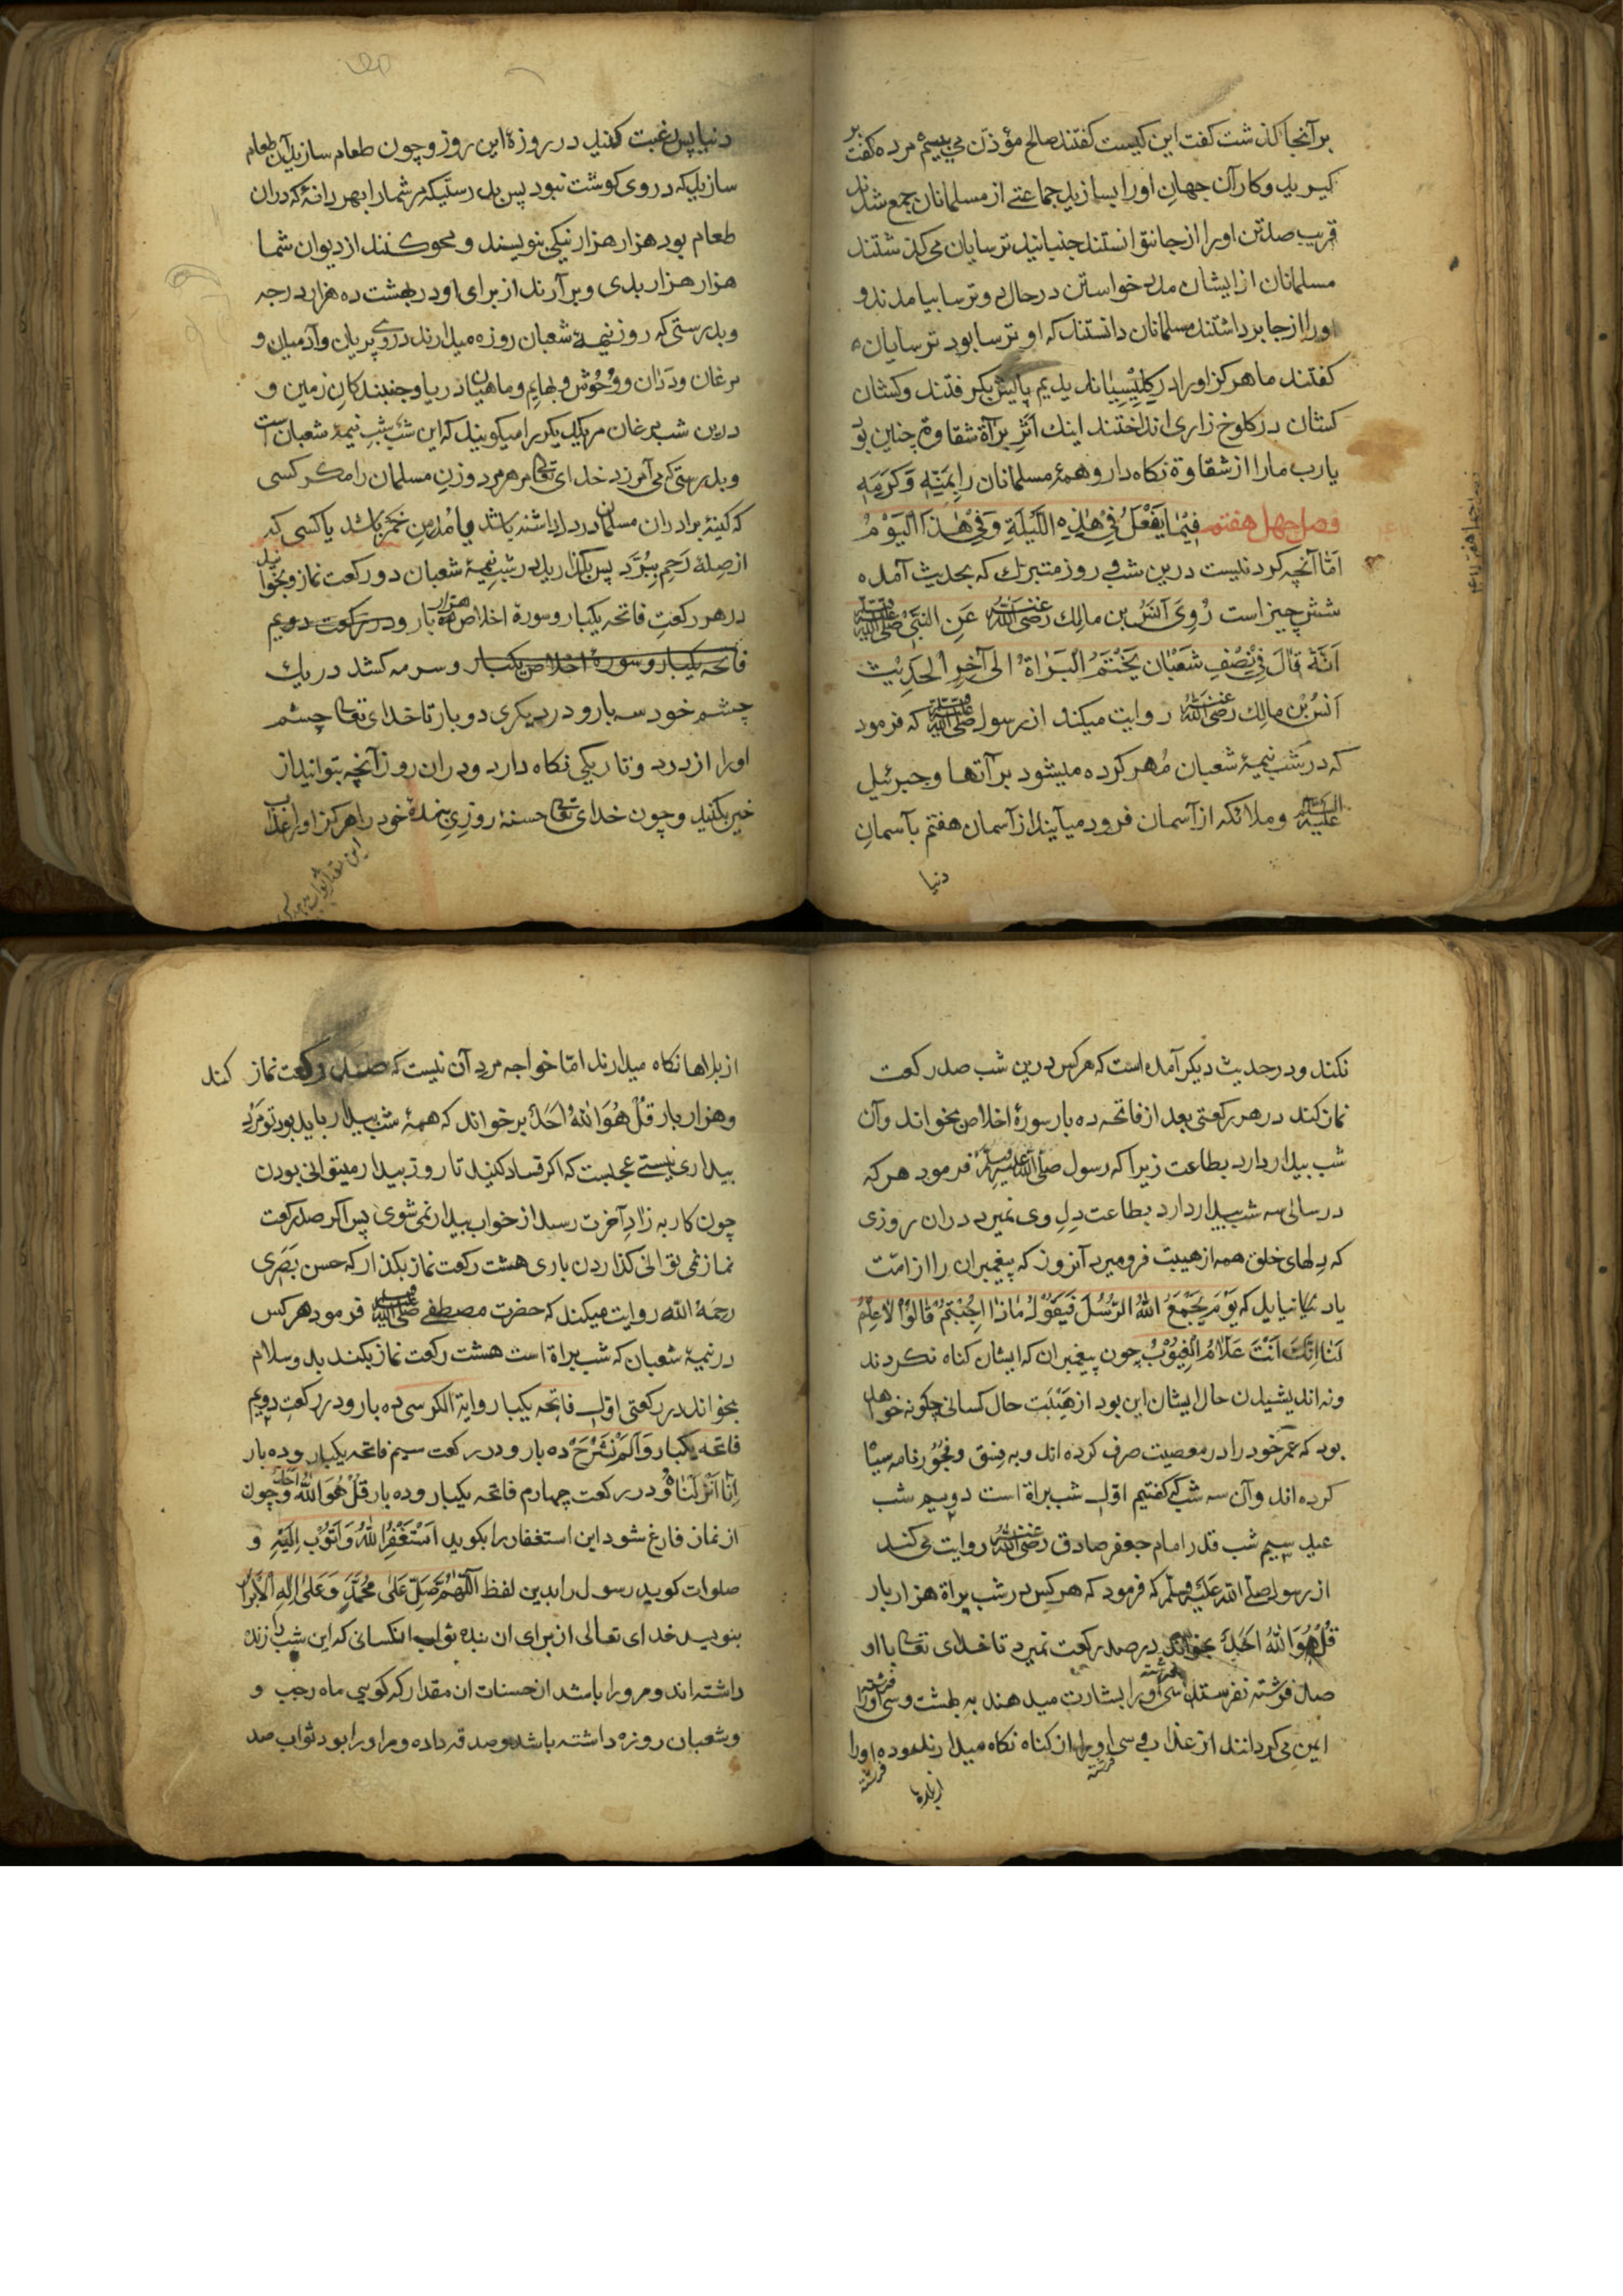 بر آنجا کذشت کفت این کیست کفتند صالح مؤذن می بینیم مرده کفت بر
کیرید و کار آن جهان اورا بسازید جماعتے از مسلمانان جمع شدند
قریب صد تن اورا از جا نتوانستند جنبانید ترسایان می کذشتند
مسلمانان از ایشان مدد خواستن در حال دو ترسا بیامدند و
اورا از جا برداشتند مسلمانان دانستند که او ترسا بود ترسایان
کفتند ما هرکز اورا در کلیسیا ندیدیم پایش بکرفتند و کشان
کشان در کلوخ زاری انداختند اینك اثر برآة شقاوة چنین بود
یارب مارا از شقاوة نکاه دار و همهٔ مسلمانان را بِمَنِّهِ وَكَرَمِهِ
فصل چهل هفتم فِیْمَا یَفْعَلُ فِیْ هٰذِهِ اللَّیْلَةِ وَفِیْ هٰذَا الْیَوْمُ
امّا آنچه کردنیست درین شب و روز متبرك که بحدیث آمده
شش چیز است رُوِیَ اَنَسُ بن مالِك رضی الله عنه عَنِ النَّبِیِّ صلی الله علیه وسلم
اَنَّهُ قَالَ فِیْ نِصْفِ شَعْبَان یَخْتَتِمُ الْبَرَاةُ الی آخِرِ الْحَدِیْث
اَنَسُ بْنِ مالِك رضی الله عنه روایت میکند از رسول صلی الله علیه وسلم که فرمود
که در شب نیمهٔ شعبان مُهر کرده میشود برآتها و جبرئیل
علیه السلام و ملائکه از آسمان فرود میآیند از آسمان هفتم بآسمانِ
دنیا
دنیا پس رغبت کنید در روزهٔ این روز و چون طعام سازید آن طعام
سازید که در وی کوشت نبود پس بدرستیکه مر شمارا بهر دانهٔ که دران
طعام بود هزار هزار نیکی بنویسند و محو کنند از دیوان شما
هزار هزار بدی و برآرند از برای او در بهشت ده هزار درجه
و بدرستی که روز نیمهٔ شعبان روزه میدارند دروی پریان و آدمیان و
مرغان و ددان و وُحُوش و بهایِم و ماهیان دریا و جنبندکانِ زمین و
درین شب مرغان مر یکدیکر را میکویند که این شب شبِ نیمهٔ شعبان است
و بدرستی که می آمرزد خدای تعالی مر هر مرد و زنِ مسلمان را مکر کسی
که کینهٔ برادران مسلمان در دل داشته باشد یا مُدْمِنِ خَمْر باشد یا کسی که
از صِلهٔ رَحِم بِبُرَّد پس بکذارید در شب نیمهٔ شعبان دو رکعت نماز و بخوانید
در هر رکعت فاتحه یکبار و سورهٔ اخلاص ده هزار بار و در رکعت دویم
فاتحه یکبار و سورهٔ اخلاص یکبار و سرمه کشد در یك
چشم خود سه بار و در دیکری دو بار تا خدای تعالی چشم
اورا از درد و تاریکی نکاه دارد و دران روز آنچه بتوانید از
خیر بکنید و چون خدای تعالی حسنهٔ روزیِ بندهٔ خود را هرکز اورا عذاب
نکند و در حدیث دیکر آمده است که هرکس درین شب صد رکعت
نماز کند در هر رکعتی بعد از فاتحه ده بار سورهٔ اخلاص بخواند وآن
شب بیدار دارد بطاعت زیرا که رسول صلی الله علیه وسلم فرمود هر که
در سالی سه شب بیدار دارد بطاعت دلِ وی نمیرد دران روزی
که دلهای خلق همه از هیبت فرو میرد آنروز که پیغمبران را از امّت
یاد نیایدیل که یَوْمَ یَجْمَعُ اللّٰهُ الرُّسُلَ فَیَقُوْلُ مَاذَا اُجِبْتُمْ قَالُوْا لَا عِلْمَ
لَنَا اِنَّكَ اَنْتَ عَلَّامُ الْغُیُوْبِ چون پیغمبران که ایشان کناه نکردند
و نه اندیشیدن حال ایشان این بود از هَیْبَت حال کسانی چکونه خواهد
بود که عمر خود را در معصیت صرف کرده اند و به فِسق و فُجُوْر نامه سیاه
کرده اند وآن سه شب که کفتیم اوّل شب براة است دویم شب
عید سیم شب قدر امام جعفر صادق رضی الله عنه روایت می کند
از رسول صلّی الله علیه وسلّم که فرمود که هرکس در شب براة هزار بار
قُلْ هُوَ اللّٰهُ اَحَدٌ بخواند در صد رکعت نمیرد تا خدای تعالی با او
صد فرشته نفرستد سی فرشته اورا بشارت میدهند به بهشت و سی فرشته اورا
ایمن می کردانند از عذاب و سی فرشته اورا از کناه نکاه میدارند و ده فرشته اورا
از بلاها
از بلاها نکاه میدارند امّا خواجه مرد آن نیست که صد رکعت نماز کند
و هزار بار قُلْ هُوَ اللّٰهُ اَحَدٌ برخواند که همهٔ شب بیدار باید بود تو مَرْدِ
بیداری نیستے عجبست که اکر فساد کنید تا روز بیدار میتوانی بودن
چون کار به زادِ آخرت رسد از خواب بیدار نمی شوی پس اکر صد رکعت
نماز نمی توانی کذاردن باری هشت رکعت نماز بکذار که حسن بَصَری
رحمهُ الله روایت میکند که حضرت مصطفے صلی الله علیه وسلم فرمود هر کس
در نیمهٔ شعبان که شب براة است هشت رکعت نماز بکند بدو سلام
بخواند در رکعتی اوّل فاتحه یکبار و ایة الکرسی ده بار و در رکعتِ دویم
فاتحه یکبار و اَلَمْ نَشْرَحْ ده بار و در رکعت سیم فاتحه یکبار و ده بار
اِنَّا اَنْزَلْنَاهُ و در رکعت چهارم فاتحه یکبار و ده بار قُلْ هُوَ اللّٰهُ اَحَدٌ و چون
از نماز فارغ شود این استغفار را بکوید اَسْتَغْفِرُ اللّٰهَ وَاَتُوْبُ اِلَیْهِ و
صلوات کوید رسول را بدین لفظ اَللّٰهُمَّ صَلِّ عَلٰی مُحَمَّدٍ وَعَلٰی اٰلِهِ الْاَبْرَار
بنویسد خدای تعالی از برای ان بنده ثواب انکسانی که این شب را زنده
داشته اند و مر ورا باشد از حسنات ان مقدار که کویی ماه رجب و
و شعبان روزه داشته باشد و صدقه داده و مر اورا بود ثواب صد